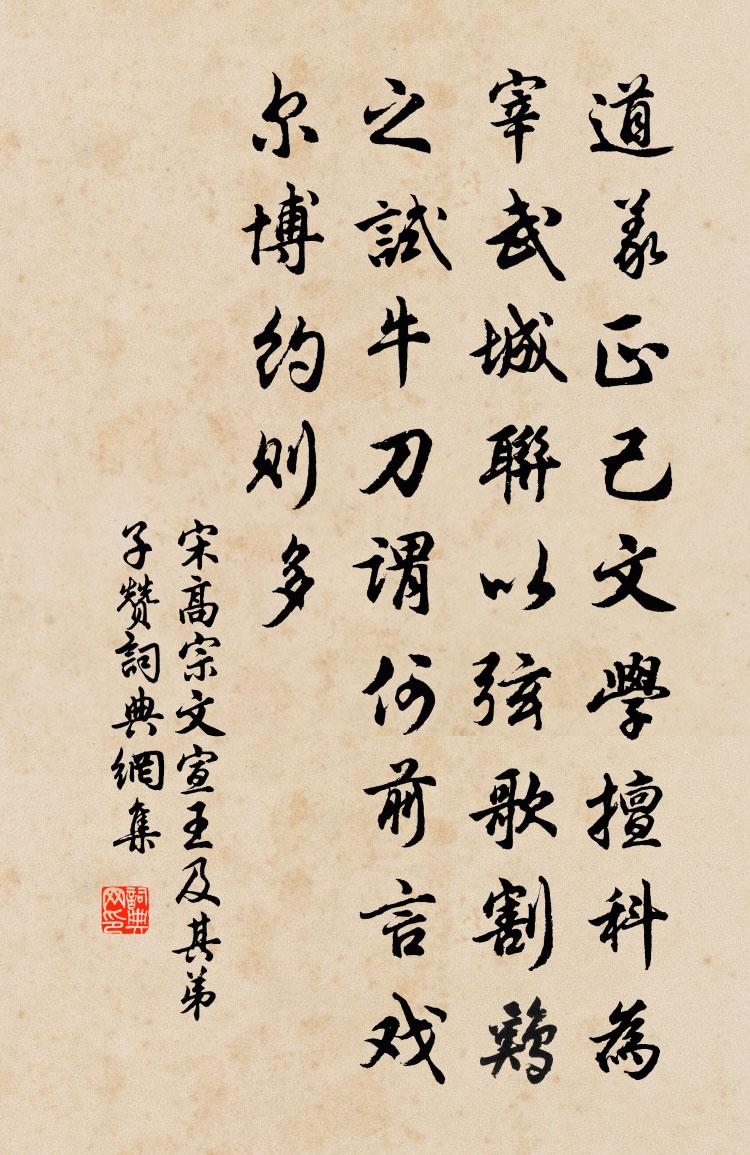 道義正己文學擅科為
宰武城聯以弦歌割鷄
之試牛刀謂何前言戏
尔博约则多
宋高宗文宣王及其弟
子赞詞典網集
詞典网印